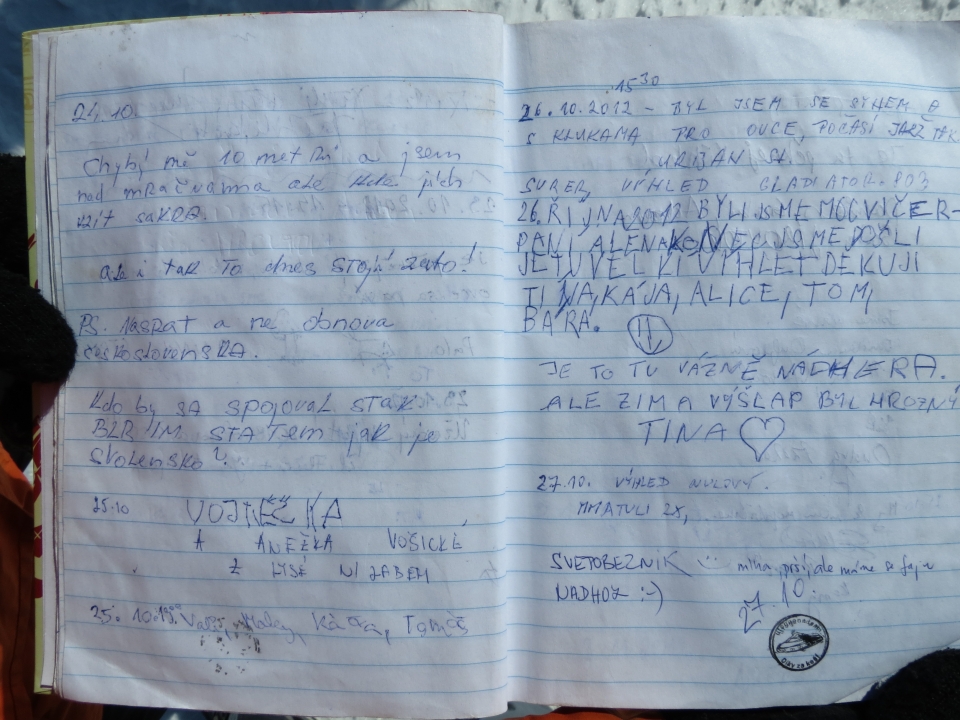 24.10.
Chybí mě 10 metrů a jsem
nad mračnama ale kde jich
vzít sakra.
ale i tak to dnes stojí zato!
PS. Nasrat a ne obnova
československa.
Kdo by sa spojoval stak
BLBIM STATem jak je
Slolensko?
25.10 VOJTĚŠKA
A ANEŽKA VOŠICKÉ
Z LYSÉ N/ LABEM
25. 10. Kačka, Tomáš
15 30
26.10.2012 - BYL JSEM SE SYNEM A
S KLUKAMA PRO OVCE, POČASÍ JAKŽ TAK
URIJAN St.
SUPER, VÝHLED GLADIATOR. 803
26. ŘIJNA 2012 BYLI JSME MOC VIČER-
PANÍ ALE NAKONEC JSME DOŠLI
JE TU VELKÍ VÝHLET DĚKUJI
TINA, KÁJA, ALICE, TOM,
BÁRA.
JE TO TU VÁZNĚ NÁDHERA.
ALE ZIMA VÝŠLAP BYL HROZNÝ
TINA
27.10. VÝHLED NULOVÝ.
MMATULI 2X,
SVETOBEZNIK mlha, prší, ale máme se fajn
NADHOZ :-)
27.10.